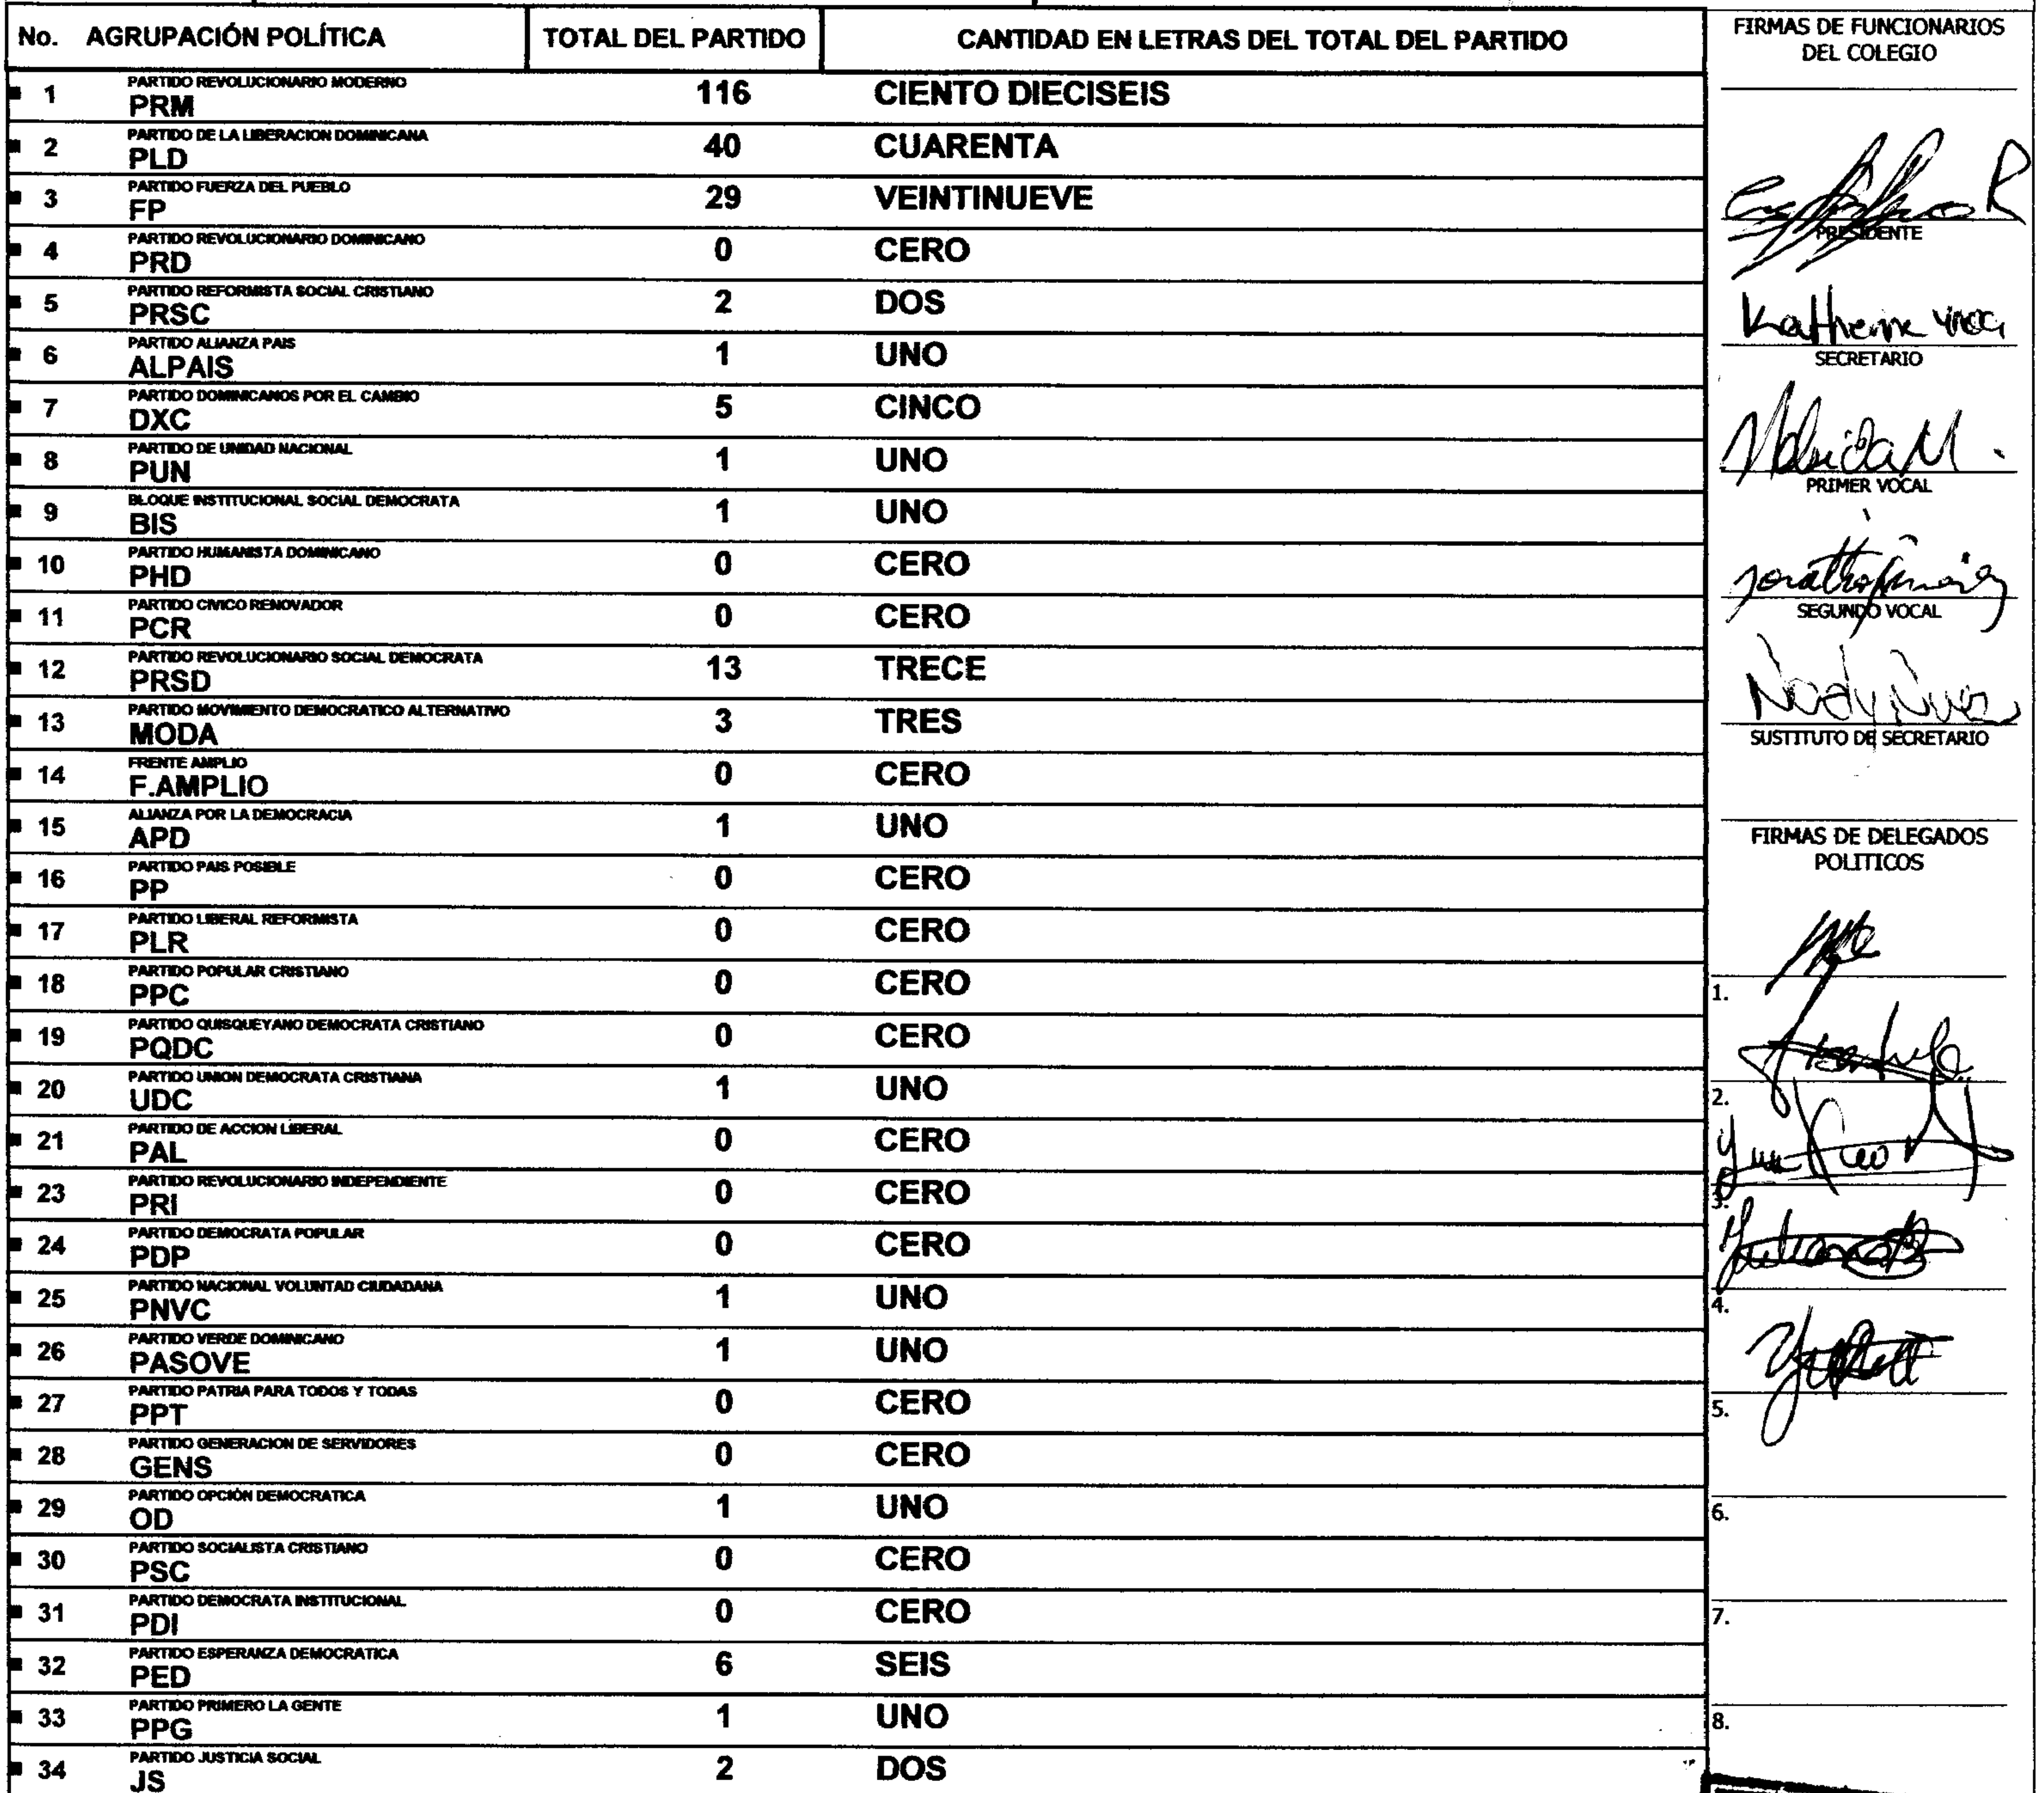 No. AGRUPACIÓN POLÍTICA TOTAL DEL PARTIDO CANTIDAD EN LETRAS DEL TOTAL DEL PARTIDO
PARTIDO REVOLUCIONARIO MODERNO
1 PRM 116 CIENTO DIECISEIS
PARTIDO DE LA LIBERACION DOMINICANA
2 PLD 40 CUARENTA
PARTIDO FUERZA DEL PUEBLO
3 FP 29 VEINTINUEVE
PARTIDO REVOLUCIONARIO DOMINICANO
4 PRD 0 CERO
PARTIDO REFORMISTA SOCIAL CRISTIANO
5 PRSC 2 DOS
PARTIDO ALIANZA PAIS
6 ALPAIS 1 UNO
PARTIDO DOMINICANOS POR EL CAMBIO
7 DXC 5 CINCO
PARTIDO DE UNIDAD NACIONAL
8 PUN 1 UNO
BLOQUE INSTITUCIONAL SOCIAL DEMOCRATA
9 BIS 1 UNO
PARTIDO HUMANISTA DOMINICANO
10 PHD 0 CERO
PARTIDO CIVICO RENOVADOR
11 PCR 0 CERO
PARTIDO REVOLUCIONARIO SOCIAL DEMOCRATA
12 PRSD 13 TRECE
PARTIDO MOVIMIENTO DEMOCRATICO ALTERNATIVO
13 MODA 3 TRES
FRENTE AMPLIO
14 F.AMPLIO 0 CERO
ALIANZA POR LA DEMOCRACIA
15 APD 1 UNO
PARTIDO PAIS POSIBLE
16 PP 0 CERO
PARTIDO LIBERAL REFORMISTA
17 PLR 0 CERO
PARTIDO POPULAR CRISTIANO
18 PPC 0 CERO
PARTIDO QUISQUEYANO DEMOCRATA CRISTIANO
19 PQDC 0 CERO
PARTIDO UNION DEMOCRATA CRISTIANA
20 UDC 1 UNO
PARTIDO DE ACCION LIBERAL
21 PAL 0 CERO
PARTIDO REVOLUCIONARIO INDEPENDIENTE
23 PRI 0 CERO
PARTIDO DEMOCRATA POPULAR
24 PDP 0 CERO
PARTIDO NACIONAL VOLUNTAD CIUDADANA
25 PNVC 1 UNO
PARTIDO VERDE DOMINICANO
26 PASOVE 1 UNO
PARTIDO PATRIA PARA TODOS Y TODAS
27 PPT 0 CERO
PARTIDO GENERACION DE SERVIDORES
28 GENS 0 CERO
PARTIDO OPCIÓN DEMOCRATICA
29 OD 1 UNO
PARTIDO SOCIALISTA CRISTIANO
30 PSC 0 CERO
PARTIDO DEMOCRATA INSTITUCIONAL
31 PDI 0 CERO
PARTIDO ESPERANZA DEMOCRATICA
32 PED 6 SEIS
PARTIDO PRIMERO LA GENTE
33 PPG 1 UNO
PARTIDO JUSTICIA SOCIAL
34 JS 2 DOS
FIRMAS DE FUNCIONARIOS
DEL COLEGIO
PRESIDENTE
Katherine
SECRETARIO
PRIMER VOCAL
SEGUNDO VOCAL
SUSTITUTO DE SECRETARIO
FIRMAS DE DELEGADOS
POLITICOS
1.
2.
3.
4.
5.
6.
7.
8.